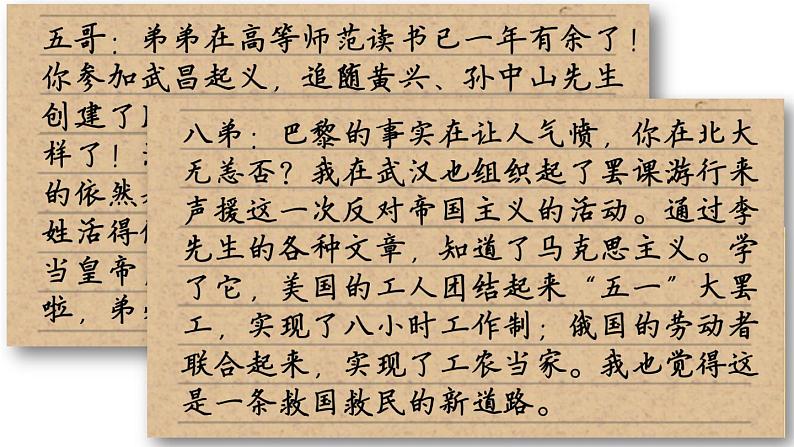 五哥：弟弟在高等师范读书已一年有余了！
你参加武昌起义，追随黄兴、孙中山先生
创建了
样了！
的依然
姓活得
当皇帝，
啦，弟
八弟：巴黎的事实在让人气愤，你在北大
无恙否？我在武汉也组织起了罢课游行来
声援这一次反对帝国主义的活动。通过李
先生的各种文章，知道了马克思主义。学
了它，美国的工人团结起来“五一”大罢
工，实现了八小时工作制；俄国的劳动者
联合起来，实现了工农当家。我也觉得这
是一条救国救民的新道路。